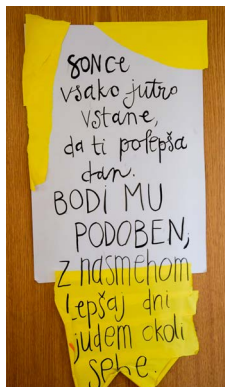 SONCE
vsako jutro
vstane,
da ti polepša
dan.
BODI MU
PODOBEN,
z nasmehom
lepšaj dni
ljudem okoli
sebe.